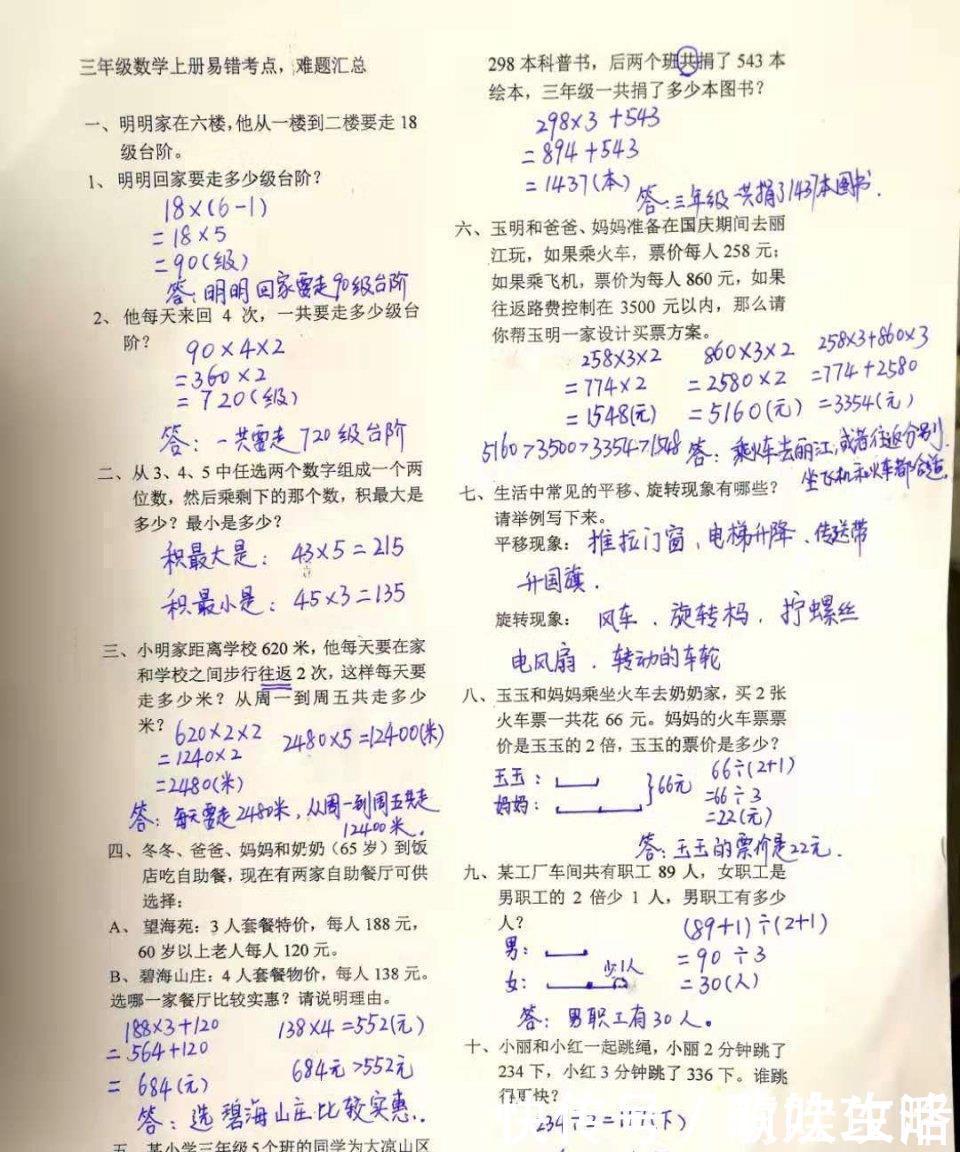 三年级数学上册易错考点，难题汇总
一、明明家在六楼，他从一楼到二楼要走18
级台阶。
1、明明回家要走多少级台阶？
18×(6-1)
=18×5
=90(级)
答：明明回家要走90级台阶
2、他每天来回 4 次，一共要走多少级台
阶？
90×4×2
=360×2
=720(级)
答：一共要走720级台阶
二、从3、4、5中任选两个数字组成一个两
位数，然后乘剩下的那个数，积最大是
多少？最小是多少？
积最大是：43×5=215
积最小是：45×3=135
三、小明家距离学校620米，他每天要在家
和学校之间步行往返2次，这样每天要
走多少米？从周一到周五共走多少
米？
620×2×2
=1240×2
=2480(米)
2480×5=12400(米)
答：每天要走2480米，从周一到周五共走
12400米.
四、冬冬、爸爸、妈妈和奶奶（65岁）到饭
店吃自助餐，现在有两家自助餐厅可供
选择：
A、望海苑：3人套餐特价，每人188元，
60岁以上老人每人120元。
B、碧海山庄：4人套餐物价，每人138元。
选哪一家餐厅比较实惠？请说明理由。
188×3+120
=564+120
=684(元)
138×4=552(元)
684元>552元
答：选碧海山庄比较实惠.
五、某小学三年级5个班的同学为大凉山区
298本科普书，后两个班共捐了543本
绘本，三年级一共捐了多少本图书？
298×3+543
=894+543
=1437(本)
答：三年级一共捐了1437本图书.
六、玉明和爸爸、妈妈准备在国庆期间去丽
江玩，如果乘火车，票价每人258元；
如果乘飞机，票价为每人860元，如果
往返路费控制在3500元以内，那么请
你帮玉明一家设计买票方案。
258×3×2
=774×2
=1548(元)
860×3×2
=2580×2
=5160(元)
258×3+860×3
=774+2580
=3354(元)
5160>3500>3354>1548
答：乘火车去丽江,或者往返分别
坐飞机和火车都合适.
七、生活中常见的平移、旋转现象有哪些？
请举例写下来。
平移现象：推拉门窗、电梯升降、传送带
升国旗.
旋转现象：风车、旋转木马、拧螺丝
电风扇、转动的车轮
八、玉玉和妈妈乘坐火车去奶奶家，买2张
火车票一共花66元。妈妈的火车票票
价是玉玉的2倍，玉玉的票价是多少？
玉玉：
妈妈：
66元
66÷(2+1)
=66÷3
=22(元)
答：玉玉的票价是22元.
九、某工厂车间共有职工89人，女职工是
男职工的2倍少1人，男职工有多少
人？
男：
女：
少1人
(89+1)÷(2+1)
=90÷3
=30(人)
答：男职工有30人。
十、小丽和小红一起跳绳，小丽2分钟跳了
234下，小红3分钟跳了336下。谁跳
得更快？